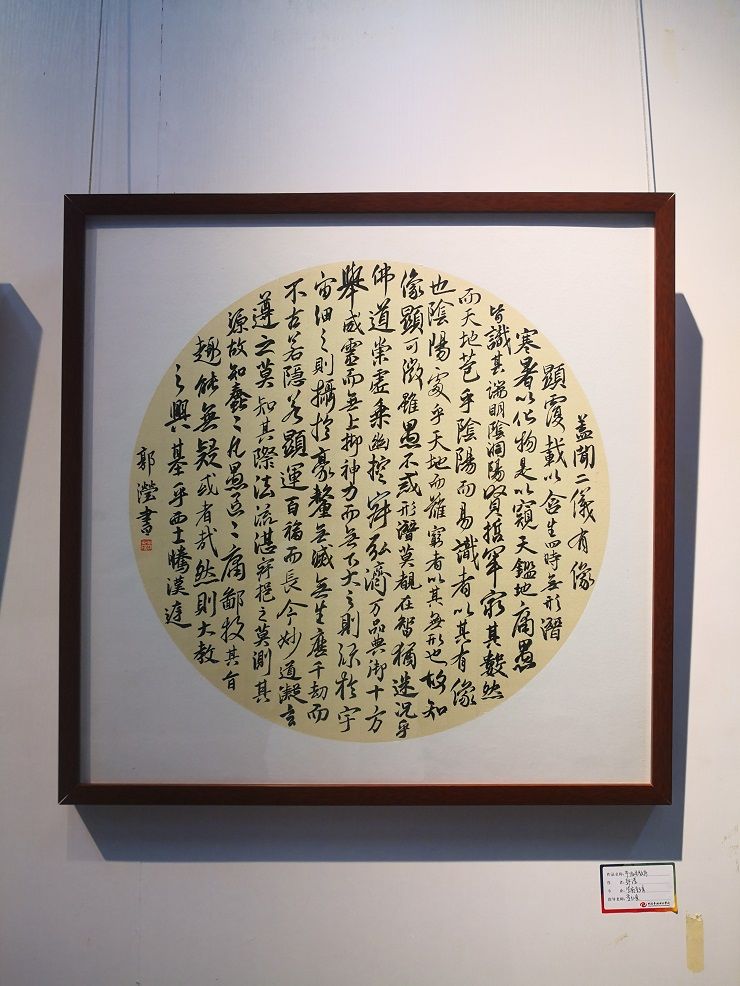 蓋聞二儀有像
顯覆載以含生四時無形潛
寒暑以化物是以窺天鑑地庸愚
皆識其端明陰洞陽賢哲罕窮其數然
而天地苞乎陰陽而易識者以其有像
也陰陽處乎天地而難窮者以其無形也故知
像顯可徵雖愚不惑形潛莫覩在智猶迷況乎
佛道崇虛乘幽控寂弘濟万品典御十方
舉威靈而無上抑神力而無下大之則弥於宇
宙細之則攝於豪釐無滅無生歷千劫而
不古若隱若顯運百福而長今妙道凝玄
遵之莫知其際法流湛寂挹之莫測其
源故知蠢〻凡愚區〻庸鄙投其旨
趣能無疑或者哉然則大教
之興基乎西土騰漢庭
郭瀅書
作品名称:
作 者: 郭滢